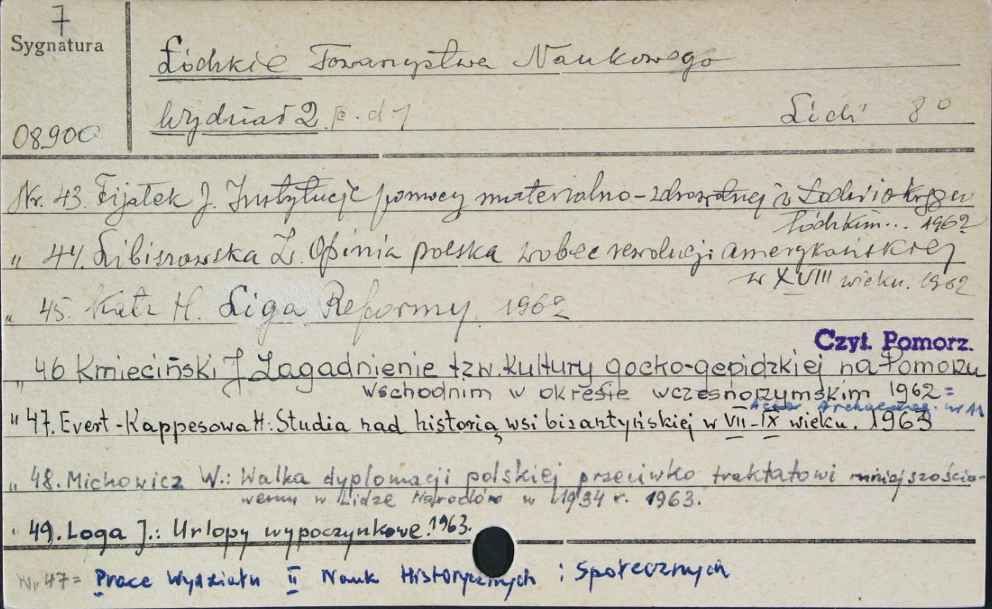 7
Sygnatura
Łódzkie Towarzystwo Naukowego
Wydział 2. c.d 7 Łódź 8°
08.900
Nr. 43. Fijałek J. Instytucje pomocy materialno-zdrowotnej w Łodzi i okręgu
łódzkim... 1962
" 44. Libiszowska Z. Opinia polska wobec rewolucji amerykańskiej
w XVIII wieku. 1962
" 45. Katz H. Liga Reformy. 1962
Czyt. Pomorz.
" 46 Kmieciński J Zagadnienie tzw. kultury gocko-gepidzkiej na Pomorzu
Wschodnim w okresie wczesnorzymskim 1962 =
Acta Archaeolog. nr 11
" 47. Evert-Kappesowa H: Studia nad historią wsi bizantyńskiej w VII-IX wieku. 1963
" 48. Michowicz W.: Walka dyplomacji polskiej przeciwko traktatowi mniejszościo-
wemu w Lidze Narodów w 1934 r. 1963.
" 49. Loga J.: Urlopy wypoczynkowe. 1963.
Nr 47 = Prace Wydziału II Nauk Historycznych i Społecznych